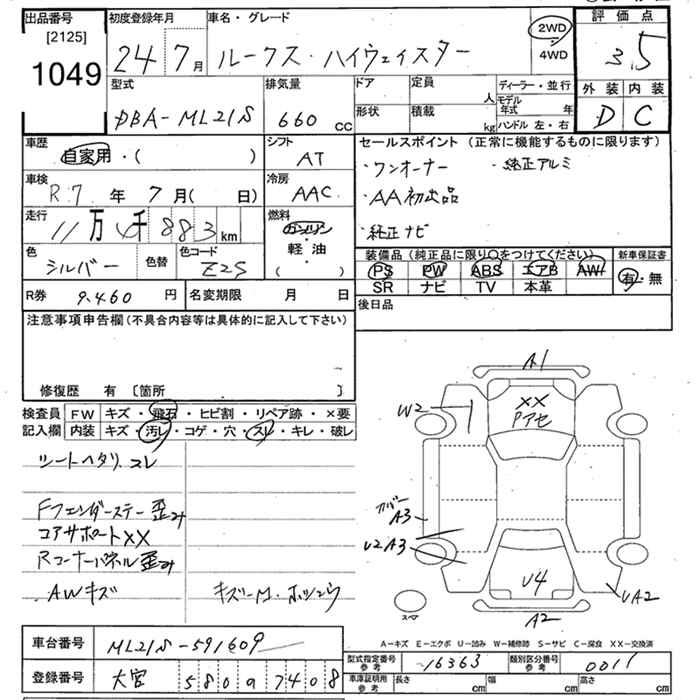 出品番号 初度登録年月 車名・グレード 評価点
[2125]
1049
24 7月 ルークス・ハイウェイスター
2WD
4WD
3.5
型式 排気量 ドア 定員 人 ディーラー・並行 外装 内装
DBA-ML21S 660 cc
形状 積載 kg モデル年式 年
ハンドル 左・右
D C
車歴 自家用・( )
シフト AT
セールスポイント (正常に機能するものに限ります)
・ワンオーナー ・純正アルミ
・AA初出品
・純正ナビ
車検 R.7 年 7 月( 日)
冷房 AAC
走行 11万 4千883 km
燃料 ガソリン
軽・油
( )
色 シルバー 色替 色コード Z2S
装備品 (純正品に限り○をつけてください) 新車保証書
PS PW ABS エアB AW 有・無
SR ナビ TV 本革
R券 9,460 円 名変期限 月 日
後日品
注意事項申告欄 (不具合内容等は具体的に記入して下さい)
修復歴 有 〔箇所 〕
検査員 FW キズ・飛石・ヒビ割・リペア跡・×要
記入欄 内装 キズ・汚レ・コゲ・穴・スレ・キレ・破レ
シートヘタリ.スレ
Fフェンダーステー歪み
コアサポートXX
Rコーナーパネル歪み
AWキズ
A1
W2
XX
Pアセ
カバー
A3
U2A3
U4
UA2
A2
スペア
A-キズ E-エクボ U-凹み W-補修跡 S-サビ C-腐食 XX-交換済
車台番号 ML21S-591609
型式指定番号 参考 16363 類別区分番号 参考 0011
登録番号 大宮 580 ・7408
車庫証明用 参考 長さ cm 幅 cm 高さ cm